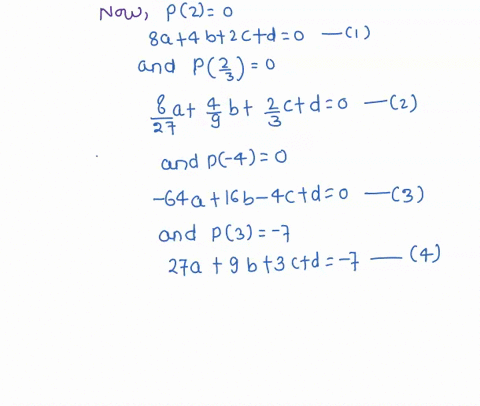 Now, P(2)=0
8a+4b+2c+d=0 —(1)
and P(2/3)=0
8/27 a+ 4/9 b+ 2/3 c+d=0 —(2)
and p(-4)=0
-64a+16b-4c+d=0 —(3)
and p(3)=-7
27a+9b+3c+d=-7 —(4)